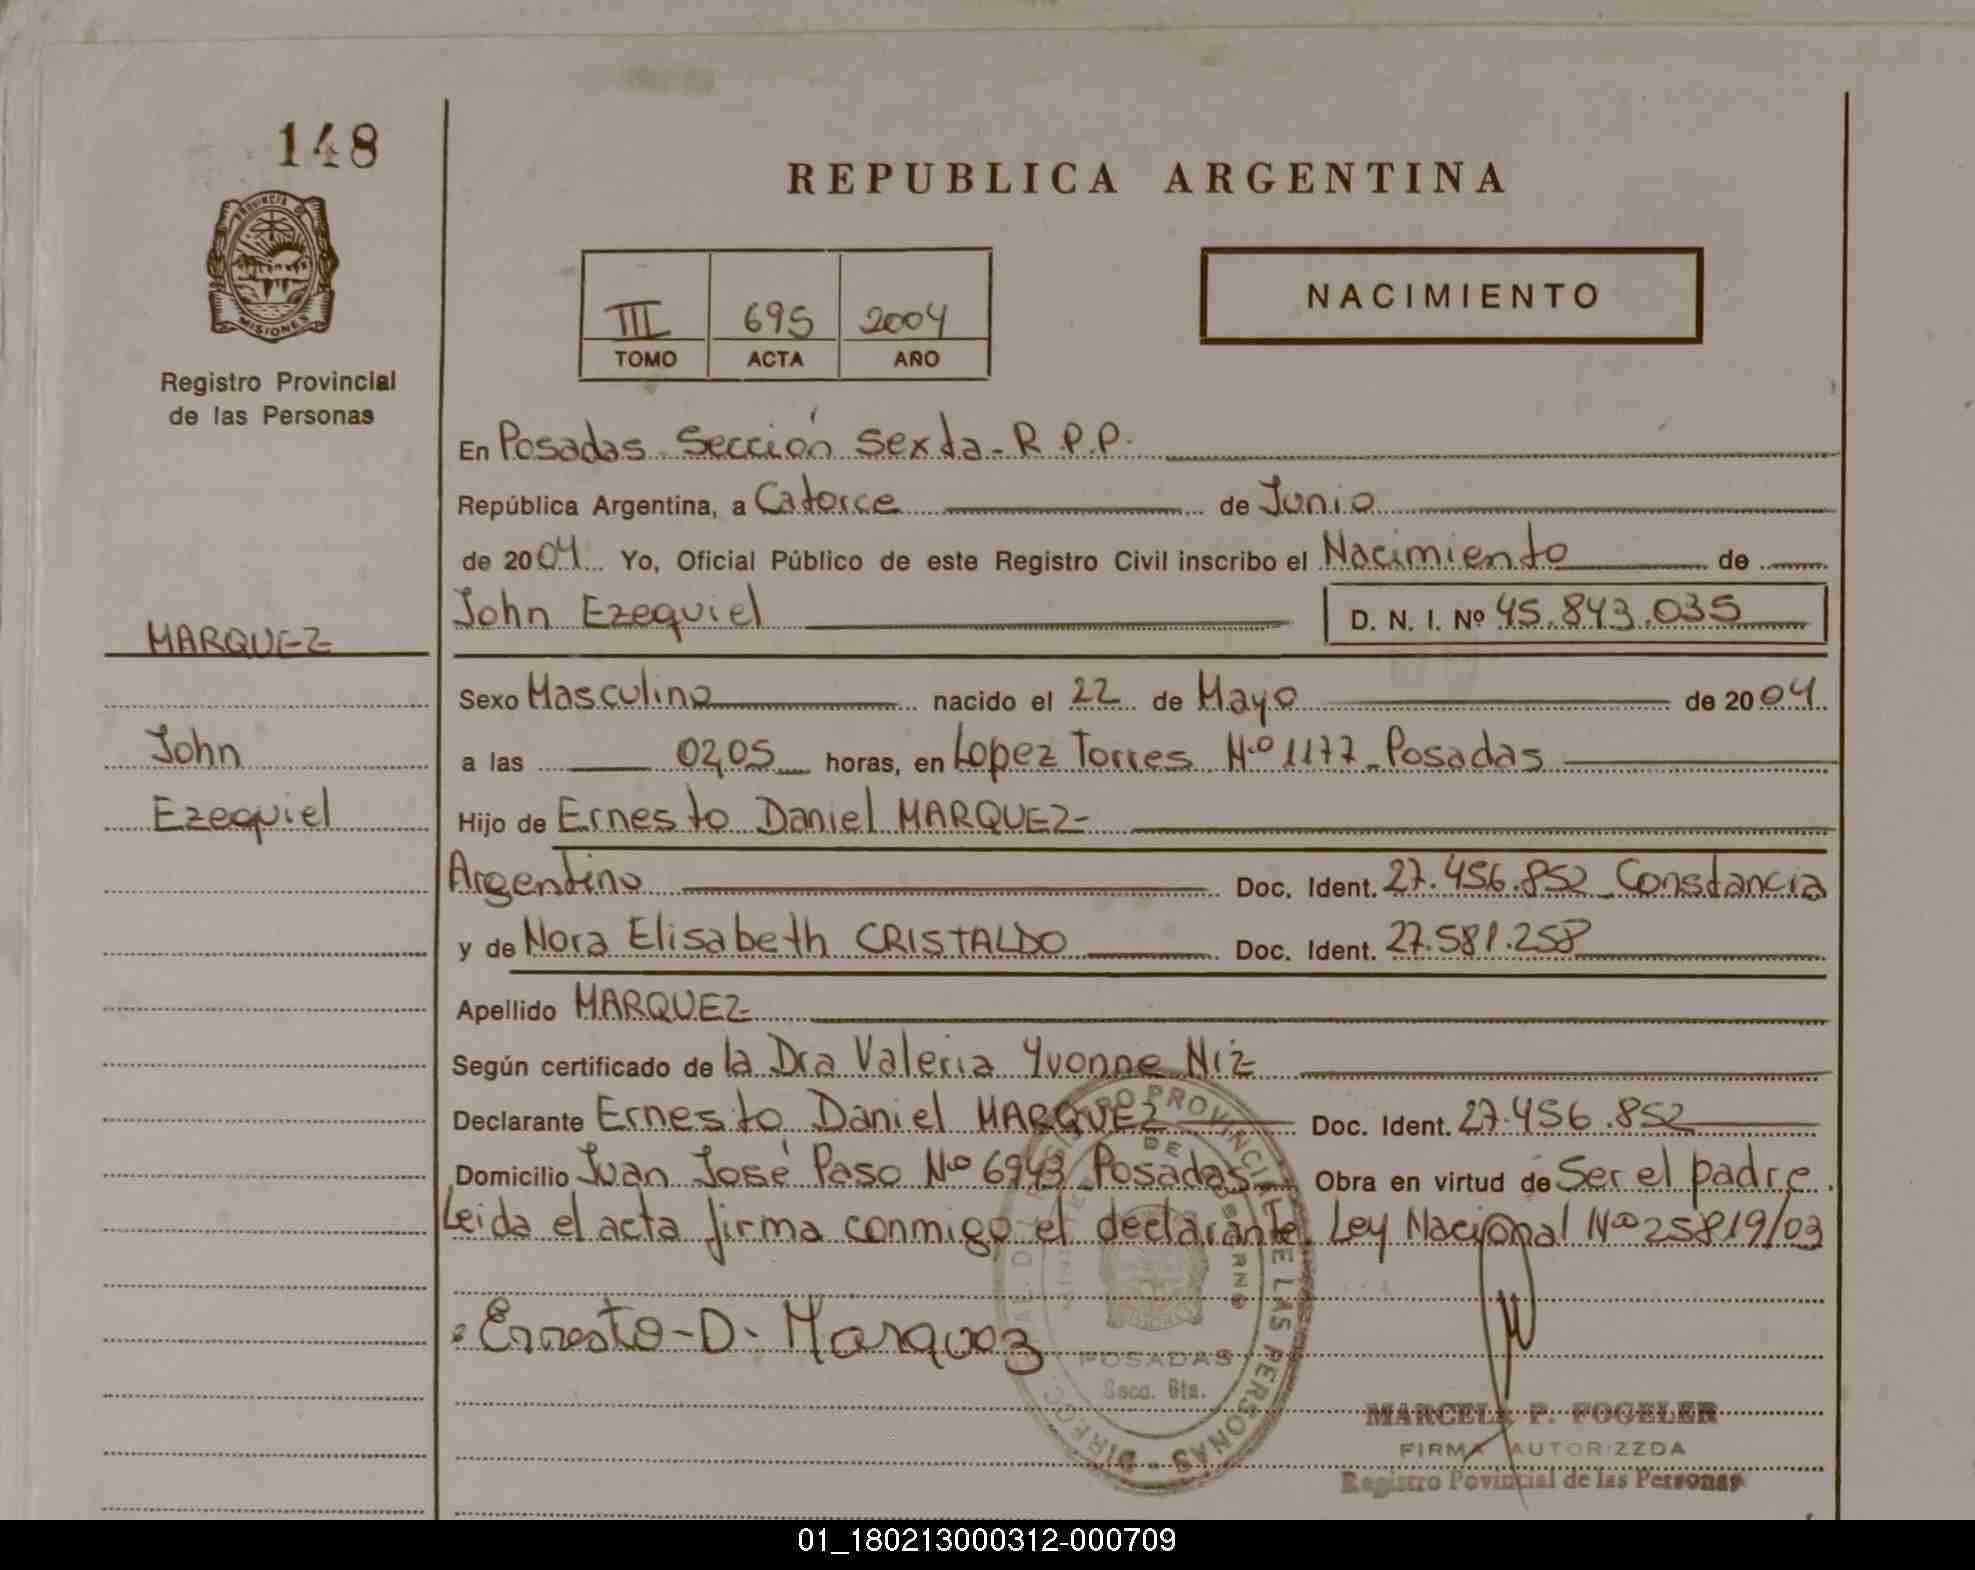 148
PROVINCIA DE
MISIONES
Registro Provincial
de las Personas
MARQUEZ
John
Ezequiel
REPUBLICA ARGENTINA
III 695 2004
TOMO ACTA AÑO
NACIMIENTO
En Posadas Sección Sexta - R.P.P.
República Argentina, a Catorce de Junio
de 2004 Yo, Oficial Público de este Registro Civil inscribo el Nacimiento de
John Ezequiel D. N. I. Nº 45.843.035
Sexo Masculino nacido el 22 de Mayo de 2004
a las 02,05 horas, en Lopez Torres Nº 1177 - Posadas
Hijo de Ernesto Daniel MARQUEZ
Argentino Doc. Ident. 27.456.852 - Constancia
y de Nora Elisabeth CRISTALDO Doc. Ident. 27.581.258
Apellido MARQUEZ
Según certificado de la Dra Valeria Yvonne Niz
Declarante Ernesto Daniel MARQUEZ Doc. Ident. 27.456.852
Domicilio Juan José Paso Nº 6943 - Posadas Obra en virtud de Ser el padre.
Leida el acta firma conmigo el declarante. Ley Nacional Nº 25819/03
Ernesto - D. Marquez
POSADAS
Secc. 6ta.
MARCELA P. FOGELER
FIRMA AUTORIZZDA
Registro Povincial de las Personas
01_180213000312-000709